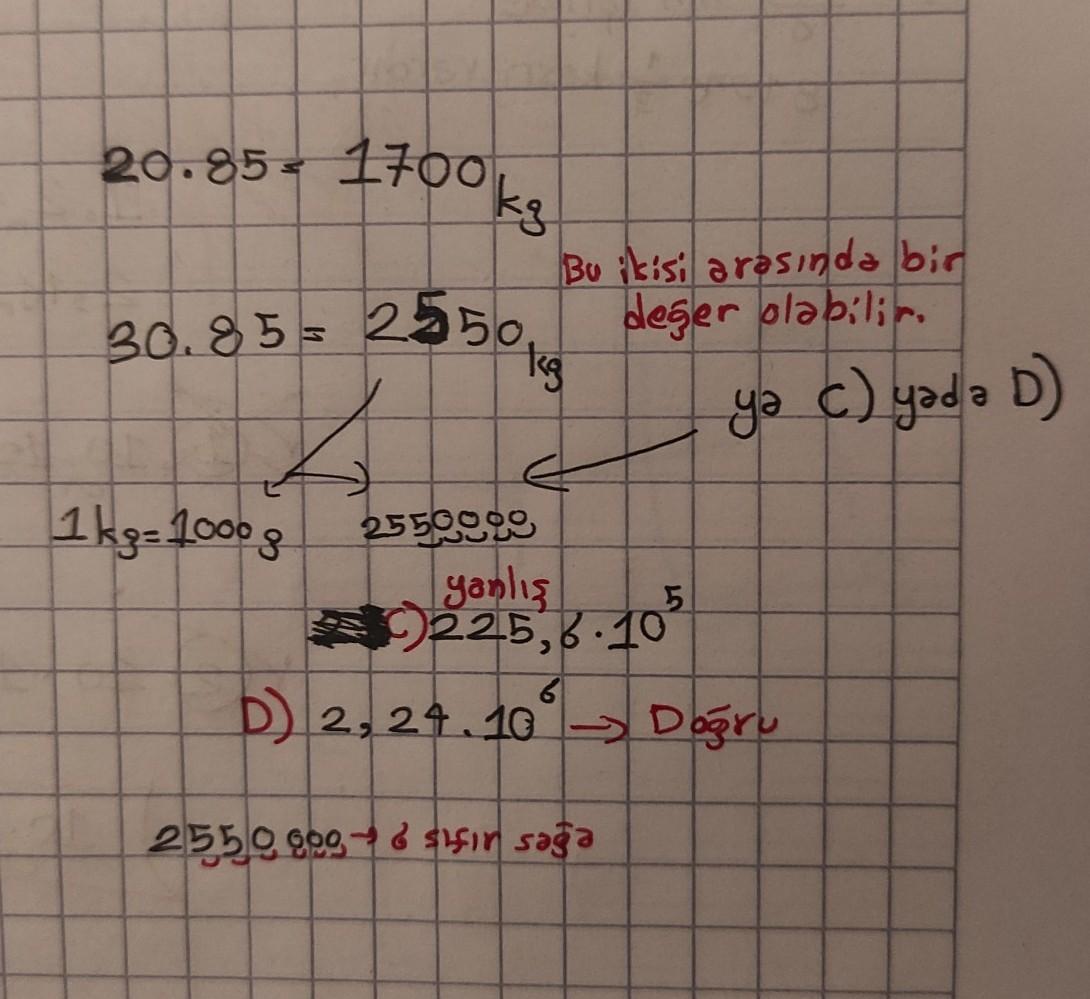 20.85= 1700 kg
Bu ikisi arasında bir
değer olabilir.
30.85= 2550 kg
ya C) yada D)
1kg=1000g
2550000
yanlış
C) 225,6.10⁵
D) 2,24.10⁶ → Doğru
2550000 → 6 sıfır sağa